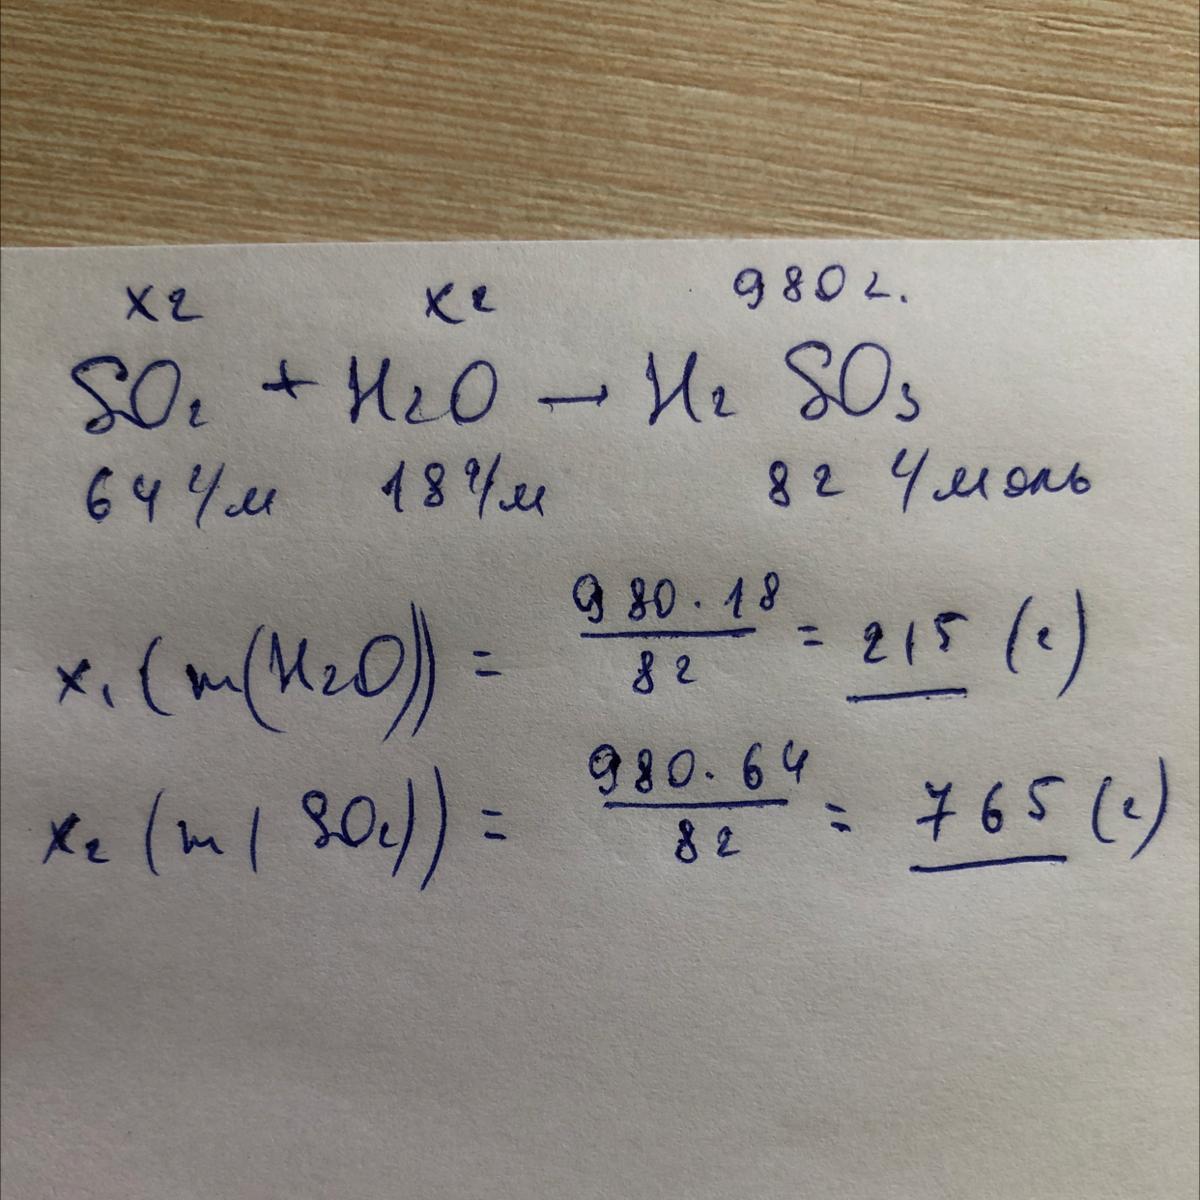 хг хг 980 г.
SO2 + H2O → H2 SO3
64 г/м 18 г/м 82 г/моль
x1 (m(H2O)) = 980·18/82 = 215 (г)
x2 (m(SO2)) = 980·64/82 = 765 (г)